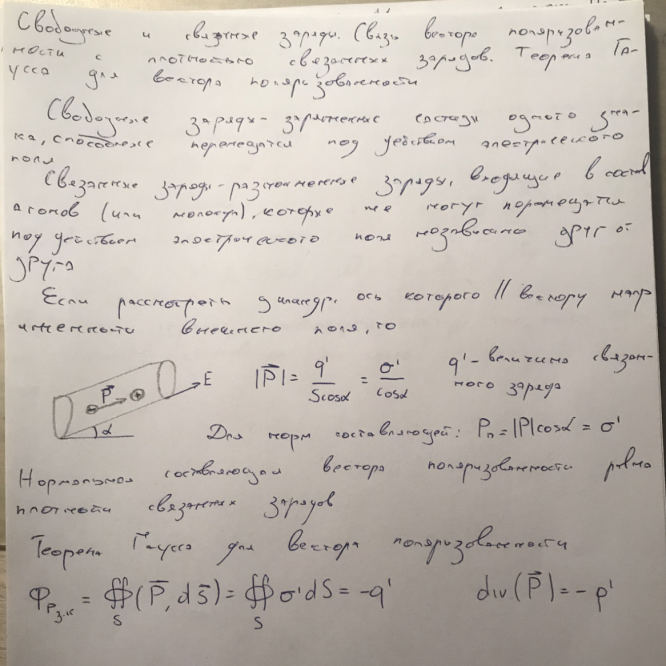 Свободные и связные заряды. Связь вектора поляризован-
ности с плотностью связанных зарядов. Теорема Га-
усса для вектора поляризованности
Свободные заряды - заряженные частицы одного зна-
ка, способные перемещатся под действием электрического
поля
Связанные заряды - разноименные заряды, входящие в состав
атомов (или молекул), которые не могут перемещатся
под действием электрического поля независимо друг от
друга
Если рассмотреть цилиндр, ось которого // вектору напр
яженности внешнего поля, то
P⃗ E α
|P⃗| = q'/Scosα = σ'/cosα q' - величина связан-
ного заряда
Для норм составляющей: Pₙ = |P|cosα = σ'
Нормальная составляющая вектора поляризованности равна
плотности связанных зарядов
Теорема Гаусса для вектора поляризованности
Φ_P з.к = ∯_S (P⃗, dS⃗) = ∯_S σ'dS = -q' div(P⃗) = -ρ'